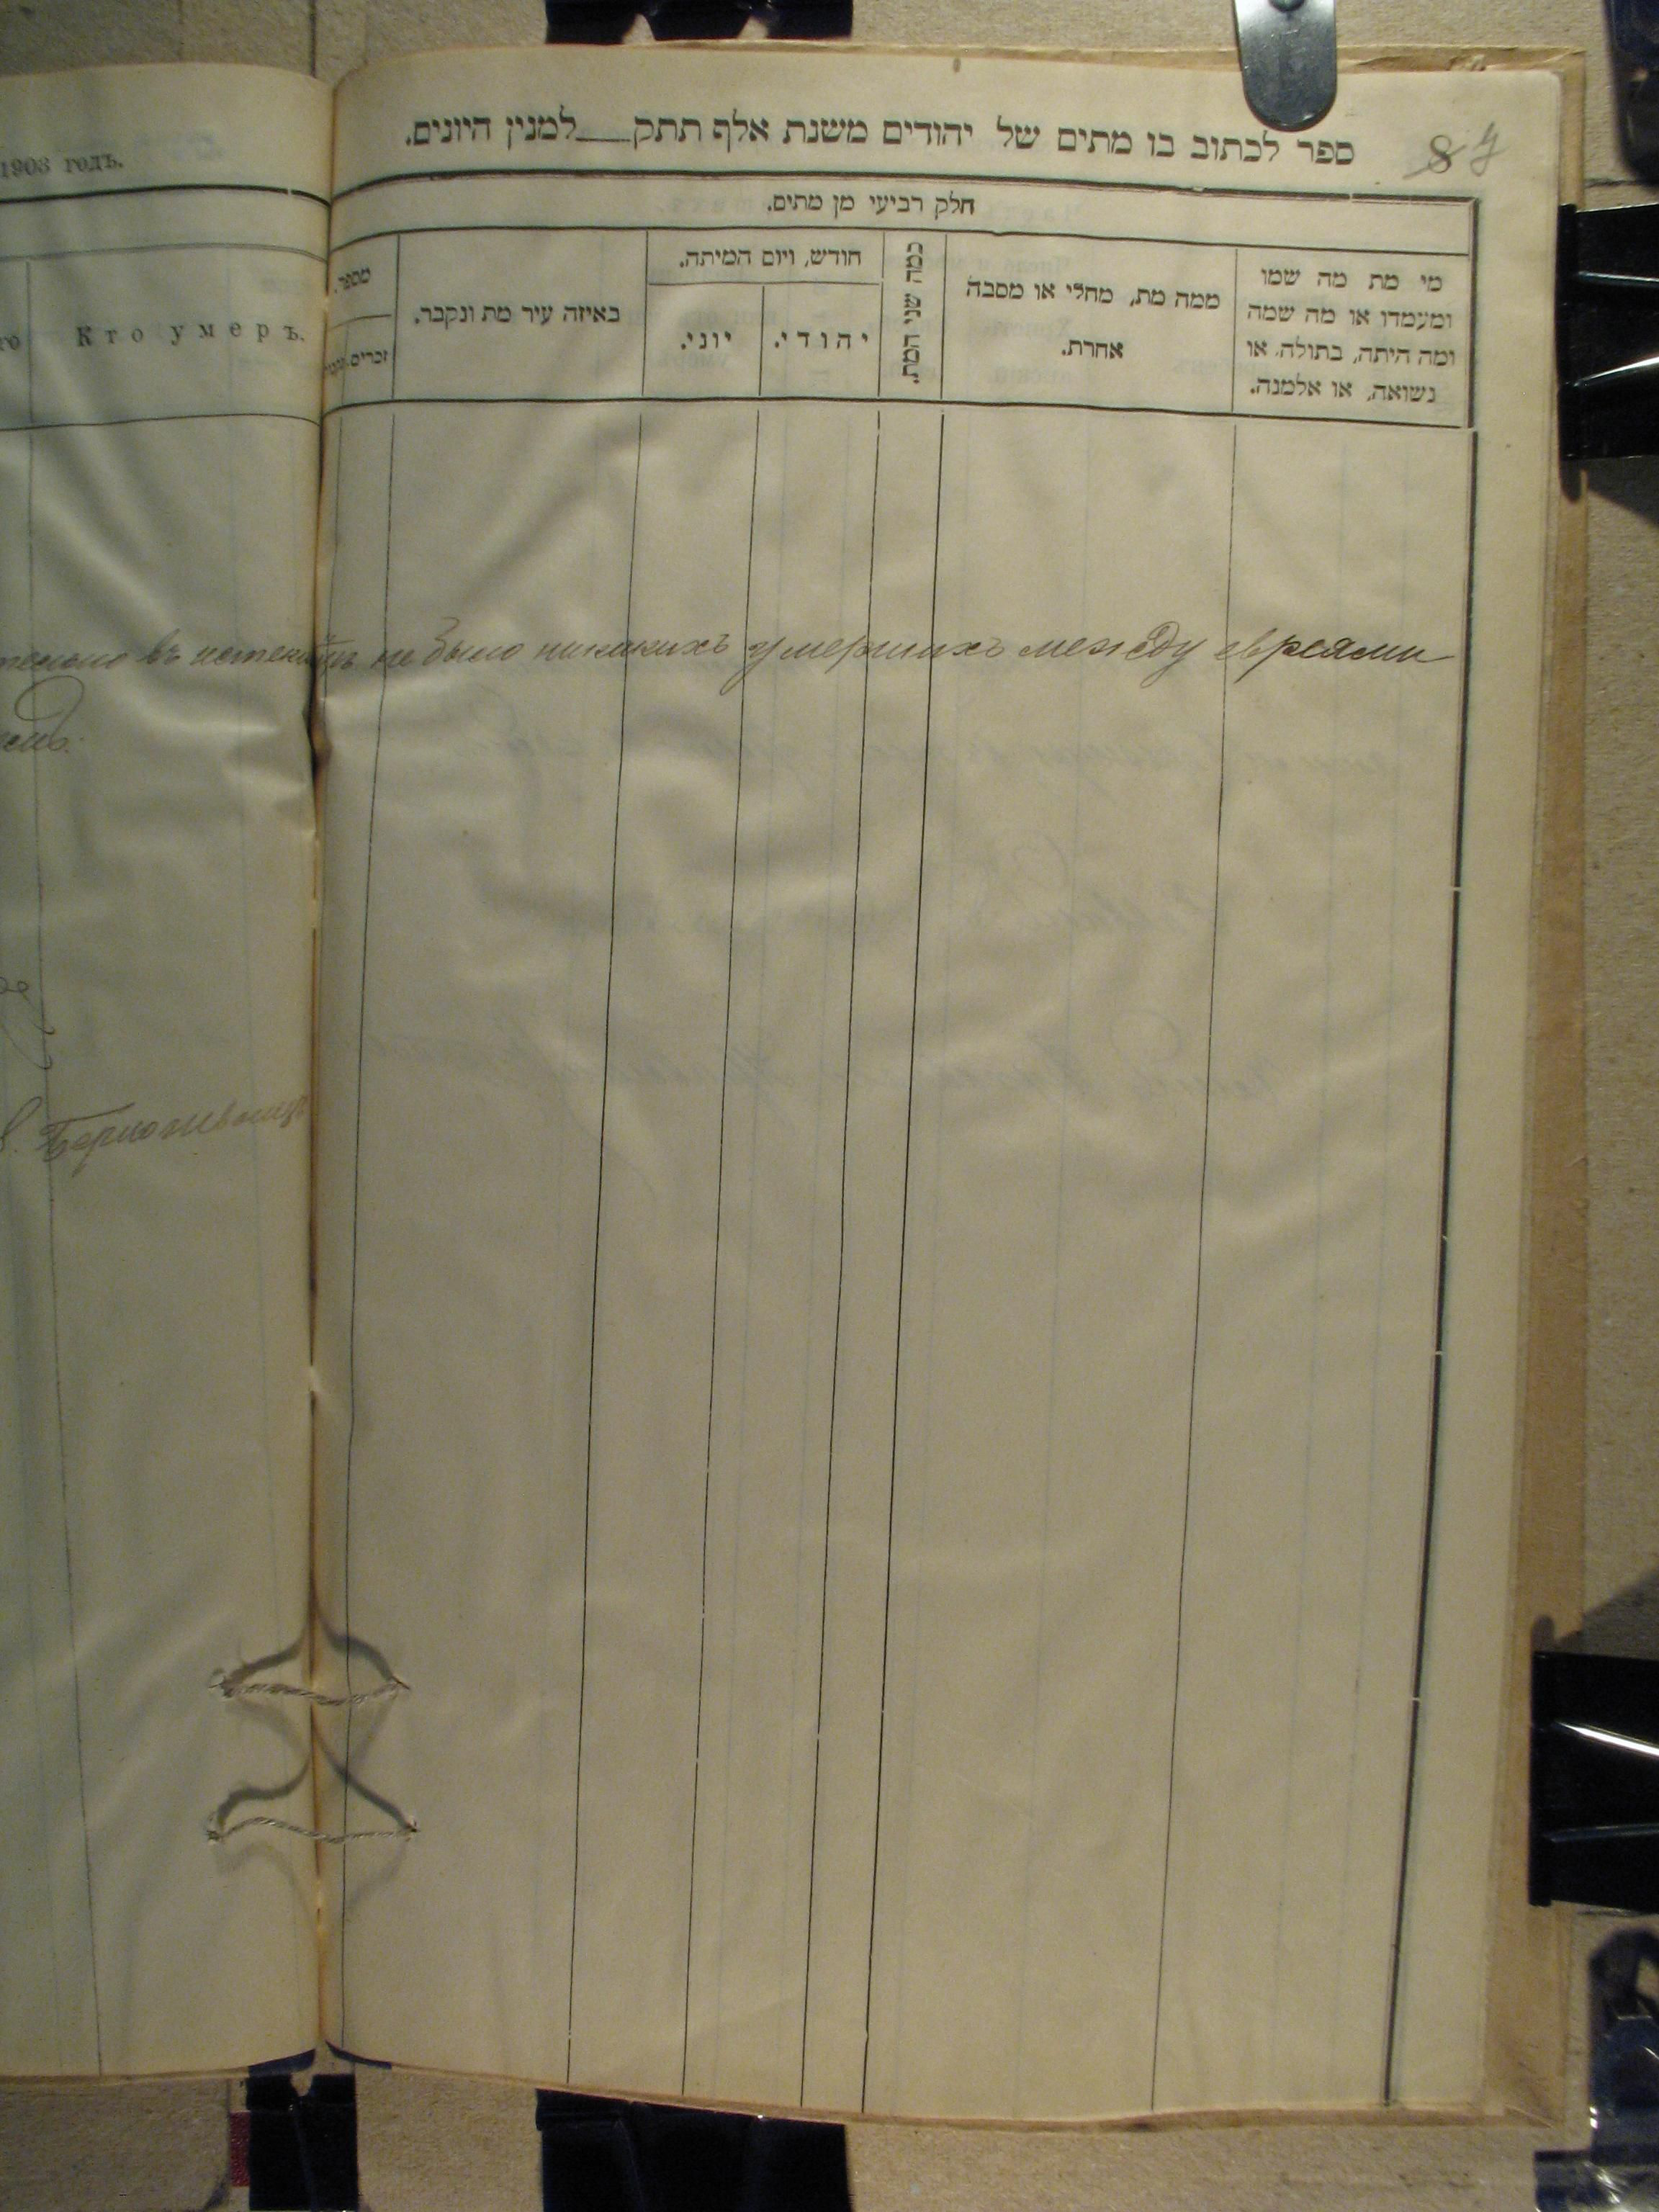 1903 годъ.
Кто умеръ.
въ истекшемъ не было никакихъ умершихъ между евреями
8
ספר לכתוב בו מתים של יהודים משנת אלף תתק__למנין היונים.
חלק רביעי מן מתים.
מי מת מה שמו
ומעמדו או מה שמה
ומה היתה, בתולה, או
נשואה, או אלמנה.
ממה מת, מחלי או מסבה
אחרת.
כמה שני המת.
חודש, ויום המיתה.
יהודי.
יוני.
באיזה עיר מת ונקבר.
מספר.
זכרים.